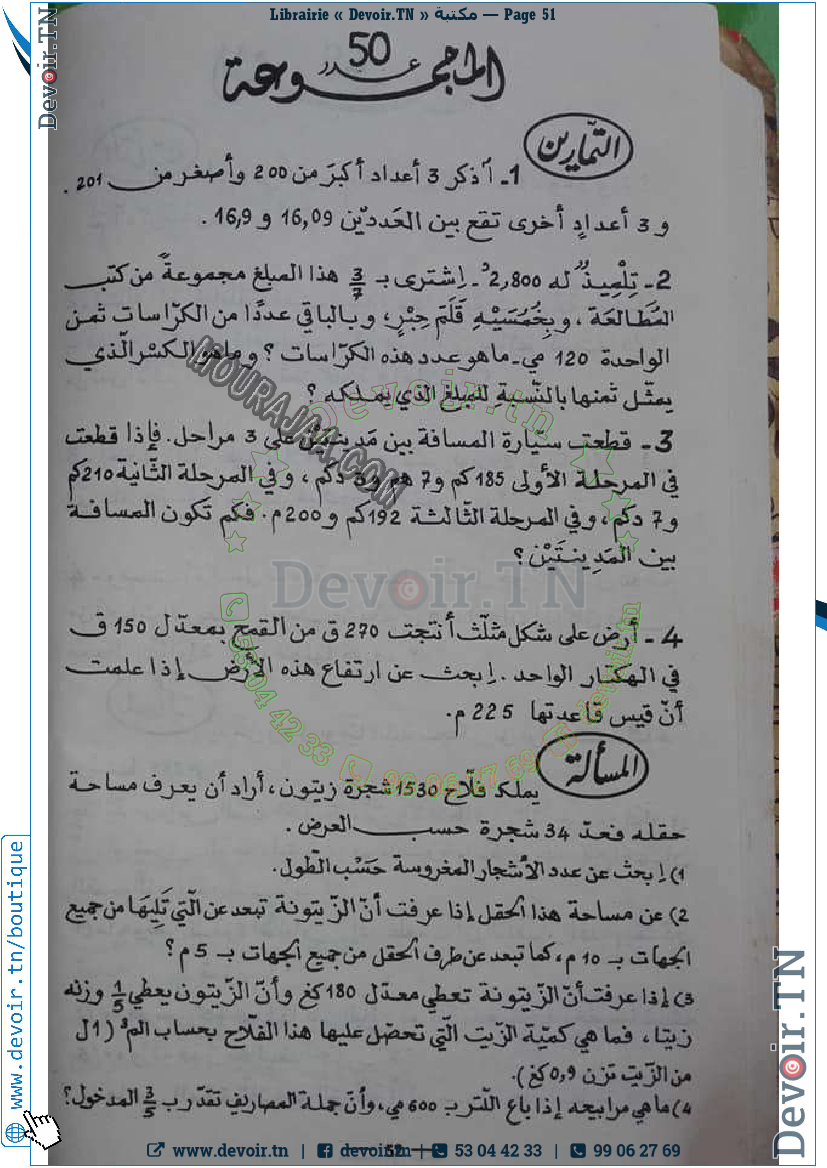 Librairie « Devoir.TN » مكتبة — Page 51
Devoir.TN
المجموعة عدد 50
التمارين
1 - أذكر 3 أعداد أكبر من 200 وأصغر من 201 .
و 3 أعدادٍ أخرى تقع بين العَدديْن 16,09 و 16,9 .
2 - تِلْمِيذٌ له 2,800د - اِشترى بـ 3/7 هذا المبلغ مجموعةً من كتب
المُطَالعَة ، وبِخُمُسَيْهِ قَلَمَ حِبْرٍ ، وبالباقي عددًا من الكرّاسات ثمن
الواحدة 120 مي - ماهو عدد هذه الكرّاسات ؟ وماهو الكسْر الّذي
يمثّل ثمنها بالنّسبةِ للمبلغ الذي يملكه ؟
3 - قطعت سيّارة المسافة بين مَدينتيْن على 3 مراحل . فإذا قطعت
في المرحلة الأولى 185 كم و 7 هم و 3 دكم ، وفي المرحلة الثّانية 210 كم
و 7 دكم ، وفي المرحلة الثّالثة 192 كم و 200 م . فكم تكون المسافة
بين المَدِينتَيْن ؟
4 - أرض على شكل مثلّث أنتجت 270 ق من القمح بمعدّل 150 ق
في الهكتار الواحد . اِبحث عن ارتفاع هذه الأرض إذا علمت
أنّ قيس قاعدتها 225 م .
المسألة
يملك فلّاح 1530 شجرة زيتون ، أراد أن يعرف مساحة
حقله فعدّ 34 شجرة حسب العرض .
1) اِبحث عن عدد الأشجار المغروسة حَسْب الطّول .
2) عن مساحة هذا الحقل إذا عرفت أنّ الزّيتونة تبعد عن الّتي تَلِيهَا من جميع
الجهات بـ 10 م ، كما تبعد عن طرف الحقل من جميع الجهات بـ 5 م ؟
3) إذا عرفت أنّ الزّيتونة تعطي معدّل 180 كغ وأنّ الزّيتون يعطي 1/5 وزنه
زيتا ، فما هي كميّة الزّيت الّتي تحصّل عليها هذا الفلّاح بحساب الم³ (1ل
من الزّيت تزن 0,9 كغ ) .
4) ما هي مرابيحه إذا باع اللّتر بـ 600 مي ، وأنّ جملة المصاريف تقدّر بـ 3/5 المدخول ؟
52
MOURAJAA.COM
Devoir.tn
Devoir.TN
53 04 42 33
99 06 27 69
devoir.tn
www.devoir.tn/boutique
Devoir.TN
www.devoir.tn | devoir.tn | 53 04 42 33 | 99 06 27 69